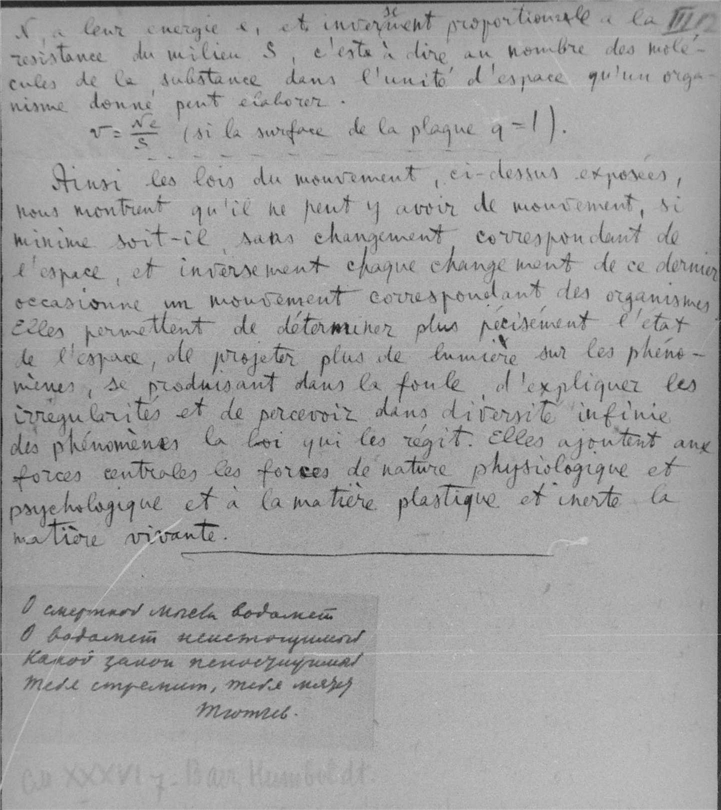 N, a leur energie e, et inversement proportionnelle a la III
resistance du milieu S, c'este à dire au nombre des molé-
cules de la substance dans l'unité d'espace qu'un orga-
nisme donné peut elaborer.
v = Ne/S (si la surface de la plaque q = 1).
Ainsi les lois du mouvement, ci-dessus exposées,
nous montrent qu'il ne peut y avoir de mouvement, si
minime soit-il, sans changement correspondant de
l'espace, et inversement chaque changement de ce dernier
occasionne un mouvement correspondant des organismes.
Elles permettent de déterminer plus pécisément l'état
de l'espace, de projeter plus de lumière sur les phéno-
mènes, se produisant dans la foule, d'expliquer les
irregularités et de percevoir dans diversité infinie
des phénomènes la loi qui les régit. Elles ajoutent aux
forces centrales les forces de nature physiologique et
psychologique et à la matière plastique et inerte la
matière vivante.
О смертной мысли водомет
О водомет неистощимый
Какой закон непостижимый
Тебя стремит, тебя
Тютчев.
См XXXVI 7. Baer, Humboldt.